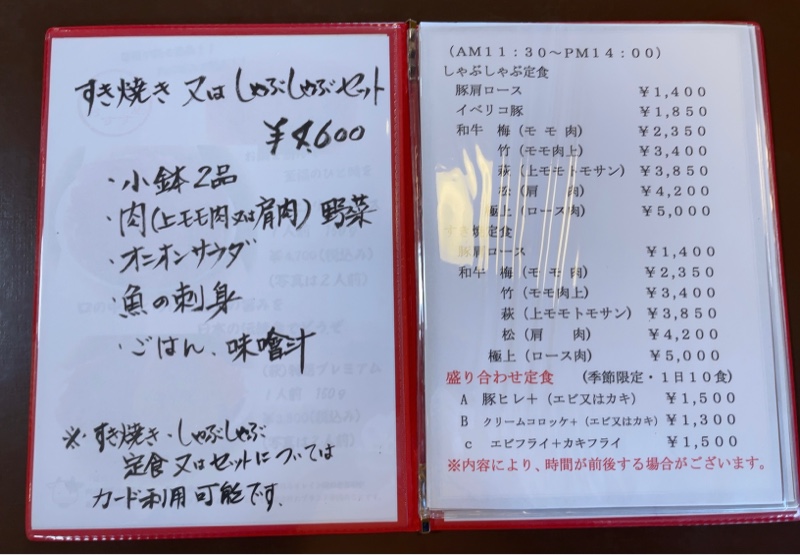 すき焼き 又は しゃぶしゃぶセット
¥4,600
・小鉢2品
・肉(上モモ肉又は肩肉) 野菜
・オニオンサラダ
・魚の刺身
・ごはん、味噌汁
※・すき焼き・しゃぶしゃぶ
定食又はセットについては
カード利用可能です.
(AM11:30~PM14:00)
しゃぶしゃぶ定食
豚肩ロース ¥1,400
イベリコ豚 ¥1,850
和牛 梅(モモ肉) ¥2,350
竹(モモ肉上) ¥3,400
萩(上モモトモサン) ¥3,850
松(肩 肉) ¥4,200
極上(ロース肉) ¥5,000
すき焼定食
豚肩ロース ¥1,400
和牛 梅(モモ肉) ¥2,350
竹(モモ肉上) ¥3,400
萩(上モモトモサン) ¥3,850
松(肩 肉) ¥4,200
極上(ロース肉) ¥5,000
盛り合わせ定食 (季節限定・1日10食)
A 豚ヒレ+(エビ又はカキ) ¥1,500
B クリームコロッケ+(エビ又はカキ) ¥1,300
c エビフライ+カキフライ ¥1,500
※内容により、時間が前後する場合がございます。